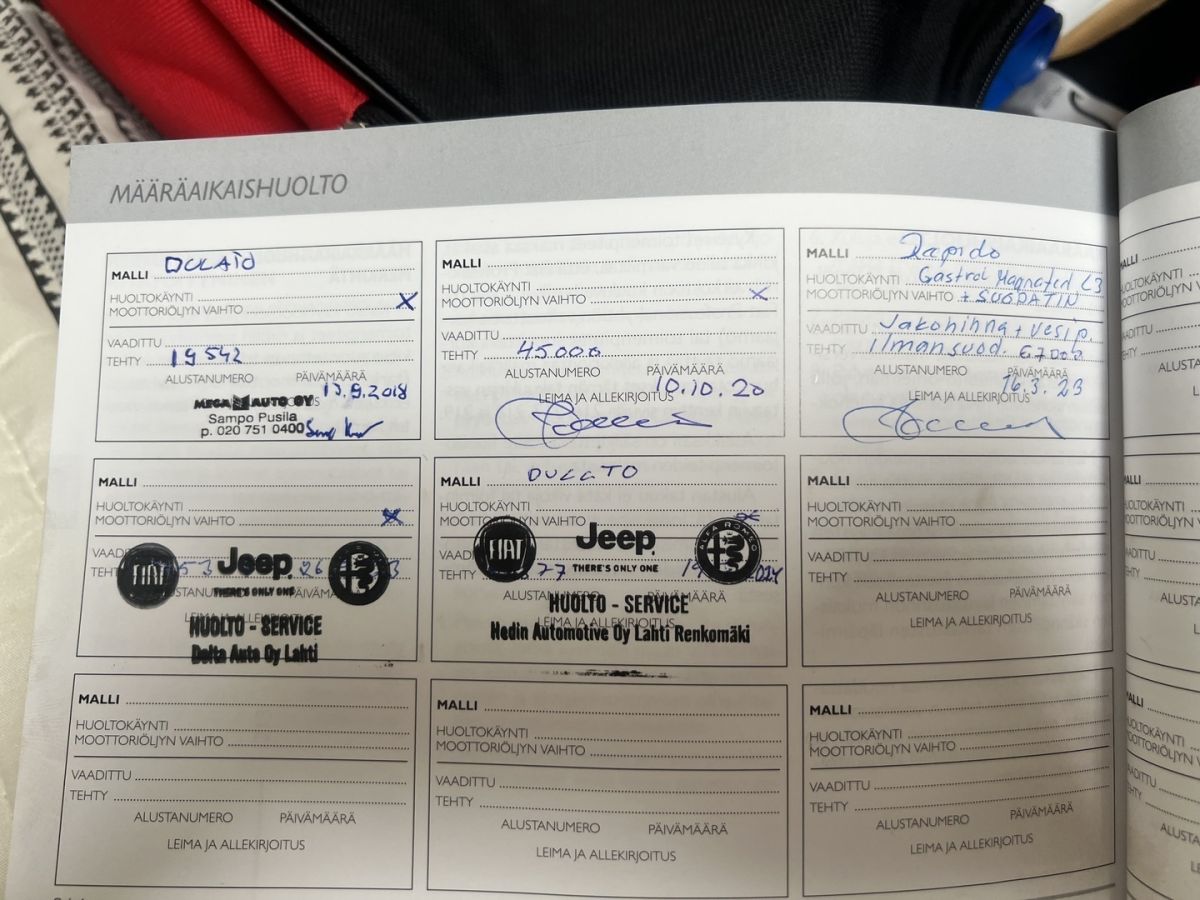 MÄÄRÄAIKAISHUOLTO
MALLI DUCATO
HUOLTOKÄYNTI
MOOTTORIÖLJYN VAIHTO X
VAADITTU
TEHTY 19542
ALUSTANUMERO PÄIVÄMÄÄRÄ
13.9.2018
MEGA AUTO OY
Sampo Pusila
p. 020 751 0400
MALLI
HUOLTOKÄYNTI
MOOTTORIÖLJYN VAIHTO X
VAADITTU
TEHTY 45000
ALUSTANUMERO PÄIVÄMÄÄRÄ
10.10.20
LEIMA JA ALLEKIRJOITUS
MALLI Rapido
HUOLTOKÄYNTI Castrol Magnatec C3
MOOTTORIÖLJYN VAIHTO + SUODATIN
VAADITTU Jakohihna + vesip.
TEHTY ilmansuod. 67000
ALUSTANUMERO PÄIVÄMÄÄRÄ
16.3.23
LEIMA JA ALLEKIRJOITUS
MALLI
HUOLTOKÄYNTI
MOOTTORIÖLJYN VAIHTO X
FIAT Jeep
THERE'S ONLY ONE
ALUSTANUMERO
LEIMA JA ALLEKIRJOITUS
HUOLTO - SERVICE
Delta Auto Oy Lahti
MALLI DUCATO
HUOLTOKÄYNTI
MOOTTORIÖLJYN VAIHTO
FIAT Jeep ALFA ROMEO
THERE'S ONLY ONE
ALUSTANUMERO PÄIVÄMÄÄRÄ
HUOLTO - SERVICE
LEIMA JA ALLEKIRJOITUS
Hedin Automotive Oy Lahti Renkomäki
MALLI
HUOLTOKÄYNTI
MOOTTORIÖLJYN VAIHTO
VAADITTU
TEHTY
ALUSTANUMERO PÄIVÄMÄÄRÄ
LEIMA JA ALLEKIRJOITUS
MALLI
HUOLTOKÄYNTI
MOOTTORIÖLJYN VAIHTO
VAADITTU
TEHTY
ALUSTANUMERO PÄIVÄMÄÄRÄ
LEIMA JA ALLEKIRJOITUS
MALLI
HUOLTOKÄYNTI
MOOTTORIÖLJYN VAIHTO
VAADITTU
TEHTY
ALUSTANUMERO PÄIVÄMÄÄRÄ
LEIMA JA ALLEKIRJOITUS
MALLI
HUOLTOKÄYNTI
MOOTTORIÖLJYN VAIHTO
VAADITTU
TEHTY
ALUSTANUMERO PÄIVÄMÄÄRÄ
LEIMA JA ALLEKIRJOITUS